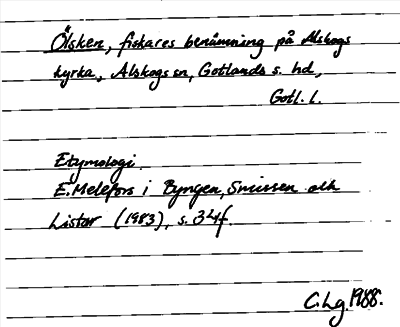 Ölsken, fiskares benämning på Alskogs
kyrka, Alskogs sn, Gotlands s. hd,
Gotl. l.
Etymologi.
E. Melefors i Byngen, Snirren och
Listar (1983), s. 34f.
C. Lg. 1988.